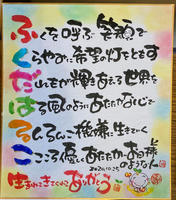 ふくを呼ぶ笑顔で
くらやみに希望の灯をともす
だ
はる風のようにあたたかな心で
るんるんご機嫌に生きていく
こころ優しくあたたかいお母様
2020.10.25
のような人
生まれてきてくれてありがとう